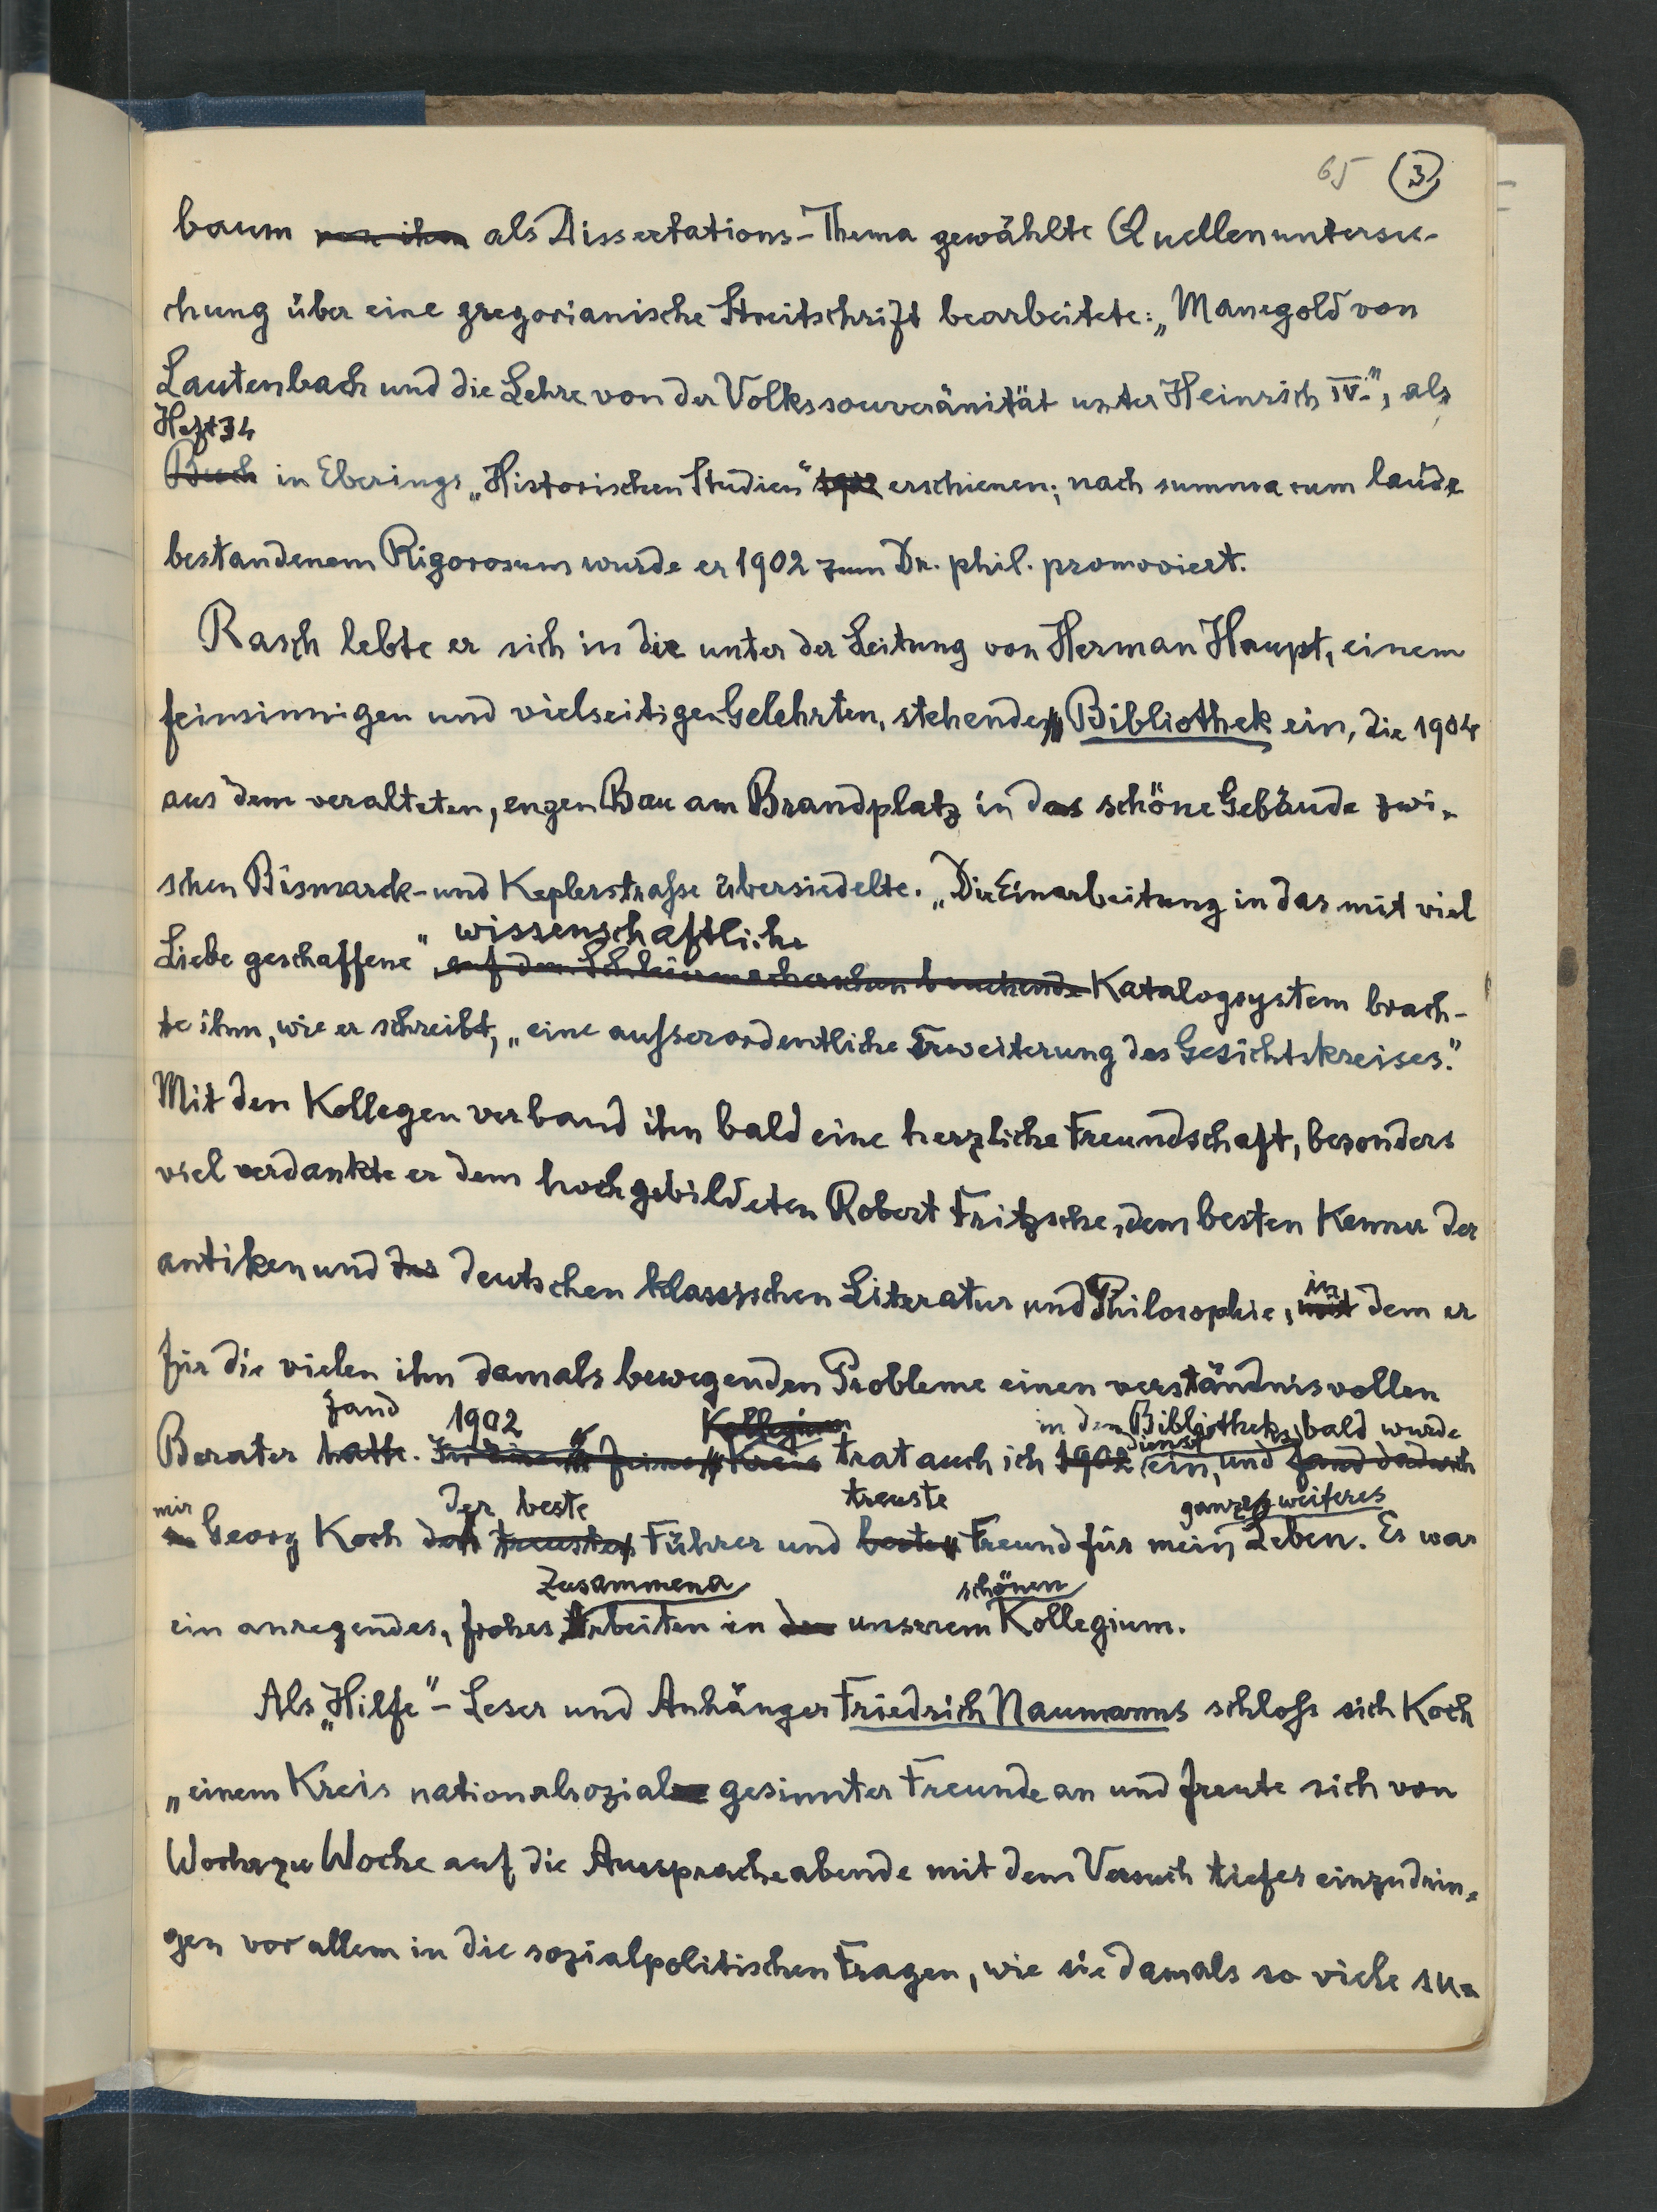 65 3
baum von ihm als Dissertations-Thema gewählte Quellenuntersu-
chung über eine gregorianische Streitschrift bearbeitete: „Manegold von
Lautenbach und die Lehre von der Volkssouveränität unter Heinrich IV.", als
Heft 34
Buch in Eberings „Historischen Studien" 1902 erschienen; nach summa cum laude
bestandenem Rigorosum wurde er 1902 zum Dr. phil. promoviert.
Rasch lebte er sich in die unter der Leitung von Herman Haupt, einem
feinsinnigen und vielseitigen Gelehrten, stehende Bibliothek ein, die 1904
aus dem veralteten, engen Bau am Brandplatz in das schöne Gebäude zwi-
schen Bismarck- und Keplerstraße übersiedelte. „Die Einarbeitung in das mit viel
wissenschaftliche
Liebe geschaffene" auf dem Schleiermacherschen beruhende Katalogsystem brach-
te ihm, wie er schreibt, „eine außerordentliche Erweiterung des Gesichtskreises."
Mit den Kollegen verband ihn bald eine herzliche Freundschaft, besonders
viel verdankte er dem hochgebildeten Robert Fritzsche, dem besten Kenner der
antiken und der deutschen klassischen Literatur und Philosophie, mit dem er
in
für die vielen ihn damals bewegenden Probleme einen verständnisvollen
fand 1902 Kollegium in den Bibliotheks- bald wurde
Berater hatte. Kreis trat auch ich 1902 ein, und fand dadurch
dienst
mir der beste treuste ganzes weiteres
Georg Koch treusten Führer und besten Freund für mein Leben. Es war
Zusammena schönen
ein anregendes, frohes Arbeiten in unserem Kollegium.
Als „Hilfe"-Leser und Anhänger Friedrich Naumanns schloß sich Koch
„einem Kreis nationalsozial gesinnter Freunde an und freute sich von
Woche zu Woche auf die Ausspracheabende mit dem Versuch tiefer einzudrin-
gen vor allem in die sozialpolitischen Fragen, wie sie damals so viele su-